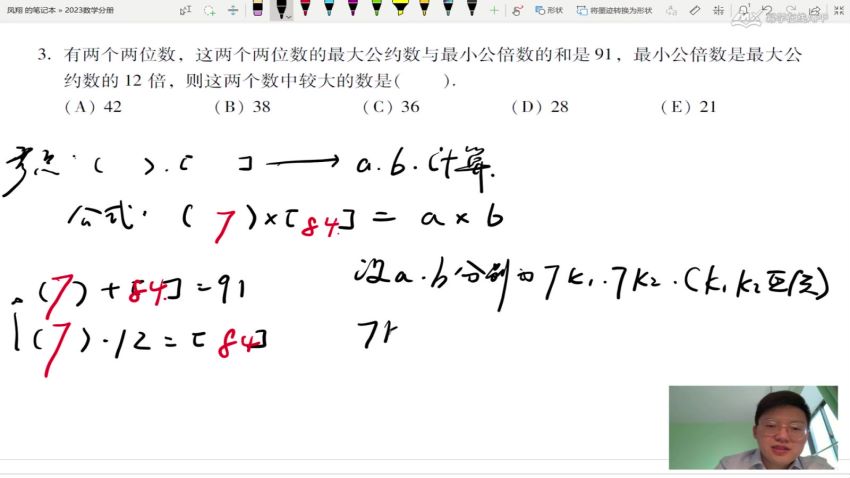 凤翔 的笔记本 » 2023数学分册
形状
将墨迹转换为形状
3. 有两个两位数，这两个两位数的最大公约数与最小公倍数的和是 91，最小公倍数是最大公
约数的 12 倍，则这两个数中较大的数是(    ).
(A) 42 (B) 38 (C) 36 (D) 28 (E) 21
考点: (    ). [    ] ⟶ a.b.计算.
公式: ( 7 )×[84] = a × b
(7) + [84] = 91
(7)·12 = [84]
设a.b分别为 7k₁.7k₂.(k₁k₂互质)
7k